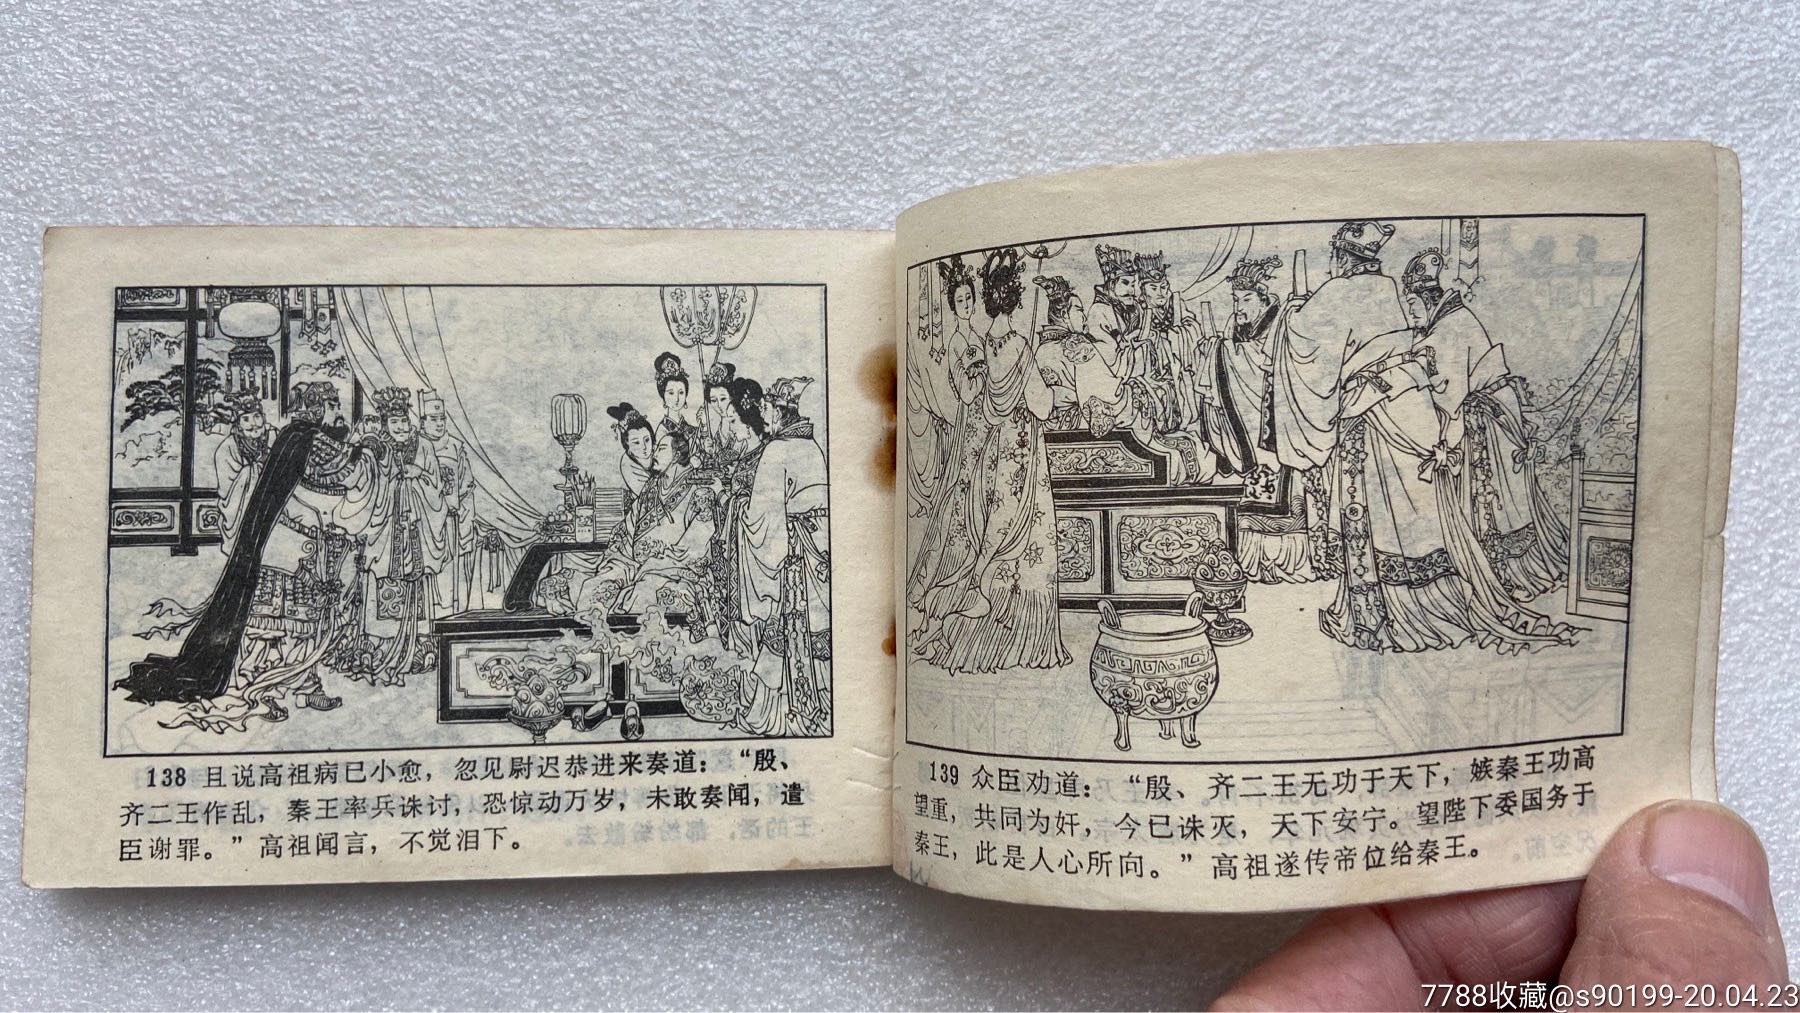 138 且说高祖病已小愈，忽见尉迟恭进来奏道：“殷、
齐二王作乱，秦王率兵诛讨，恐惊动万岁，未敢奏闻，遣
臣谢罪。”高祖闻言，不觉泪下。
139 众臣劝道：“殷、齐二王无功于天下，嫉秦王功高
望重，共同为奸，今已诛灭，天下安宁。望陛下委国务于
秦王，此是人心所向。”高祖遂传帝位给秦王。
7788收藏@s90199-20.04.23